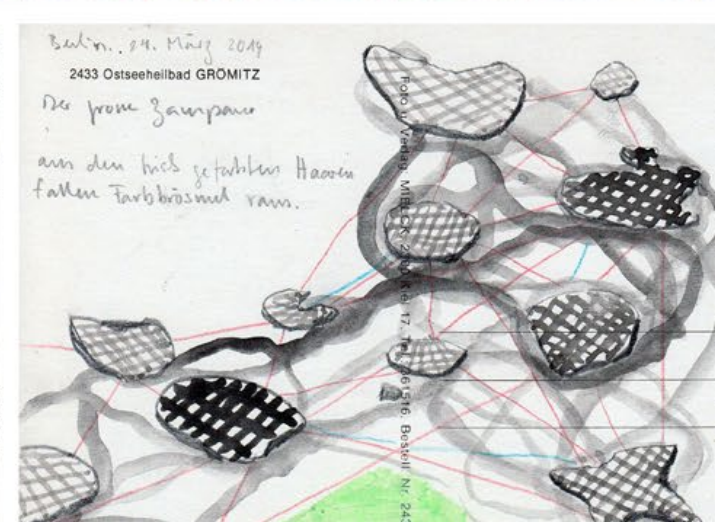 Berlin, 24. März 2019
2433 Ostseeheilbad GRÖMITZ
Der
aus den gefärbten Haaren
fallen Farbbrösmel raus.
Foto u. Verlag MIELCK, 2300 Kiel 17, Tel. 361516. Bestell Nr. 243